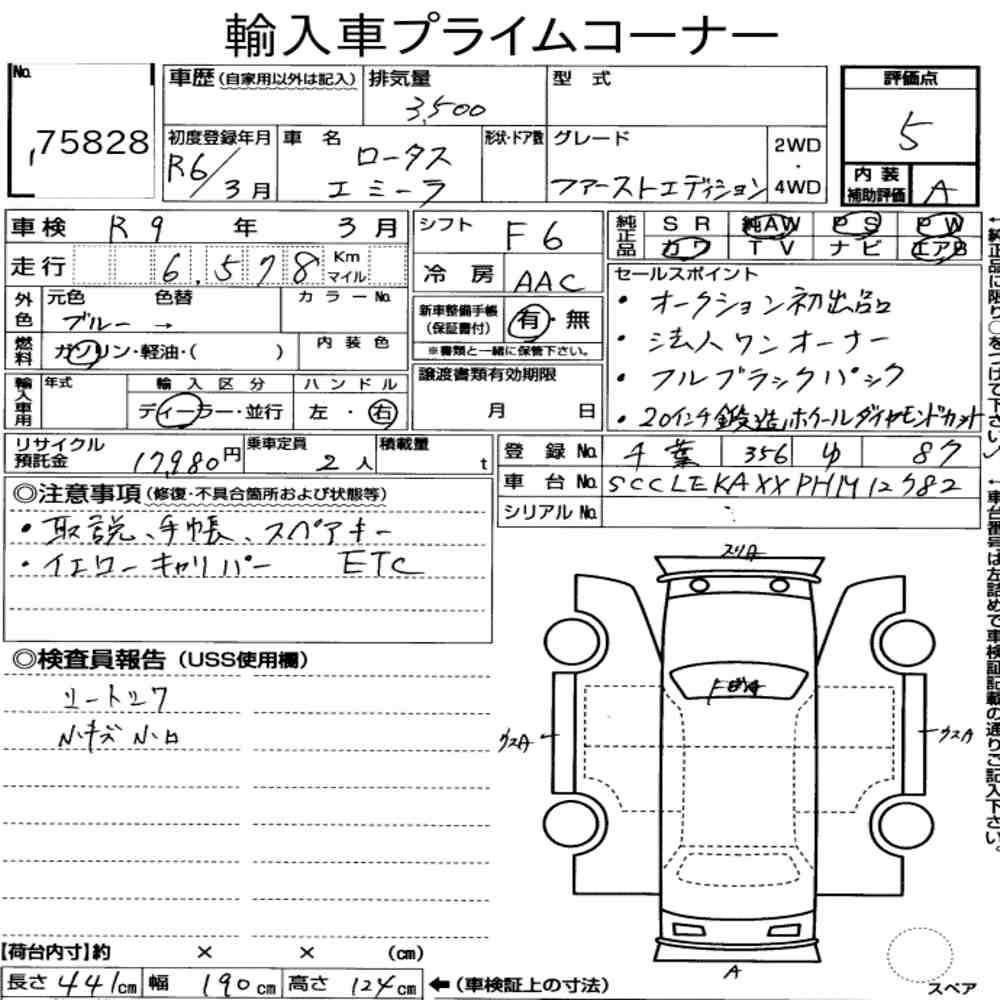 輸入車プライムコーナー
No.
75828
車歴 (自家用以外は記入)
排気量
3,500
型式
評価点
5
初度登録年月
R6/3月
車名
ロータス
エミーラ
形状・ドア数
グレード
ファーストエディション
2WD
・
4WD
内装
補助評価
A
車検 R9年 3月
走行 6,578 Km マイル
外色
元色 色替
ブルー →
カラーNo.
燃料
ガソリン・軽油・( )
内装色
輸入車用
年式
輸入区分
ディーラー・並行
ハンドル
左・右
リサイクル預託金
17,980円
乗車定員
2人
積載量
t
シフト
F6
冷房
AAC
新車整備手帳
(保証書付)
有・無
※書類と一緒に保管下さい。
譲渡書類有効期限
月 日
純正品
SR 純AW PS PW
カワ TV ナビ エアB
セールスポイント
・オークション初出品
・法人ワンオーナー
・フルブラックパック
・20インチ鍛造ホイールダイヤモンドカット
←純正品に限り○をつけて下さい。
登録No. 千葉 356 ゆ 87
車台No. SCCLEKAXXPHM12382
シリアルNo.
←車台番号は左詰めで車検証記載の通りご記入下さい。
◎注意事項(修復・不具合箇所および状態等)
・取説、手帳、スペアキー
・イエローキャリパー ETC
◎検査員報告(USS使用欄)
シートシワ
小キズ小凹
スリA
ウスA
ウスA
A
スペア
【荷台内寸】約 × × (cm)
長さ441cm 幅190cm 高さ124cm ←(車検証上の寸法)